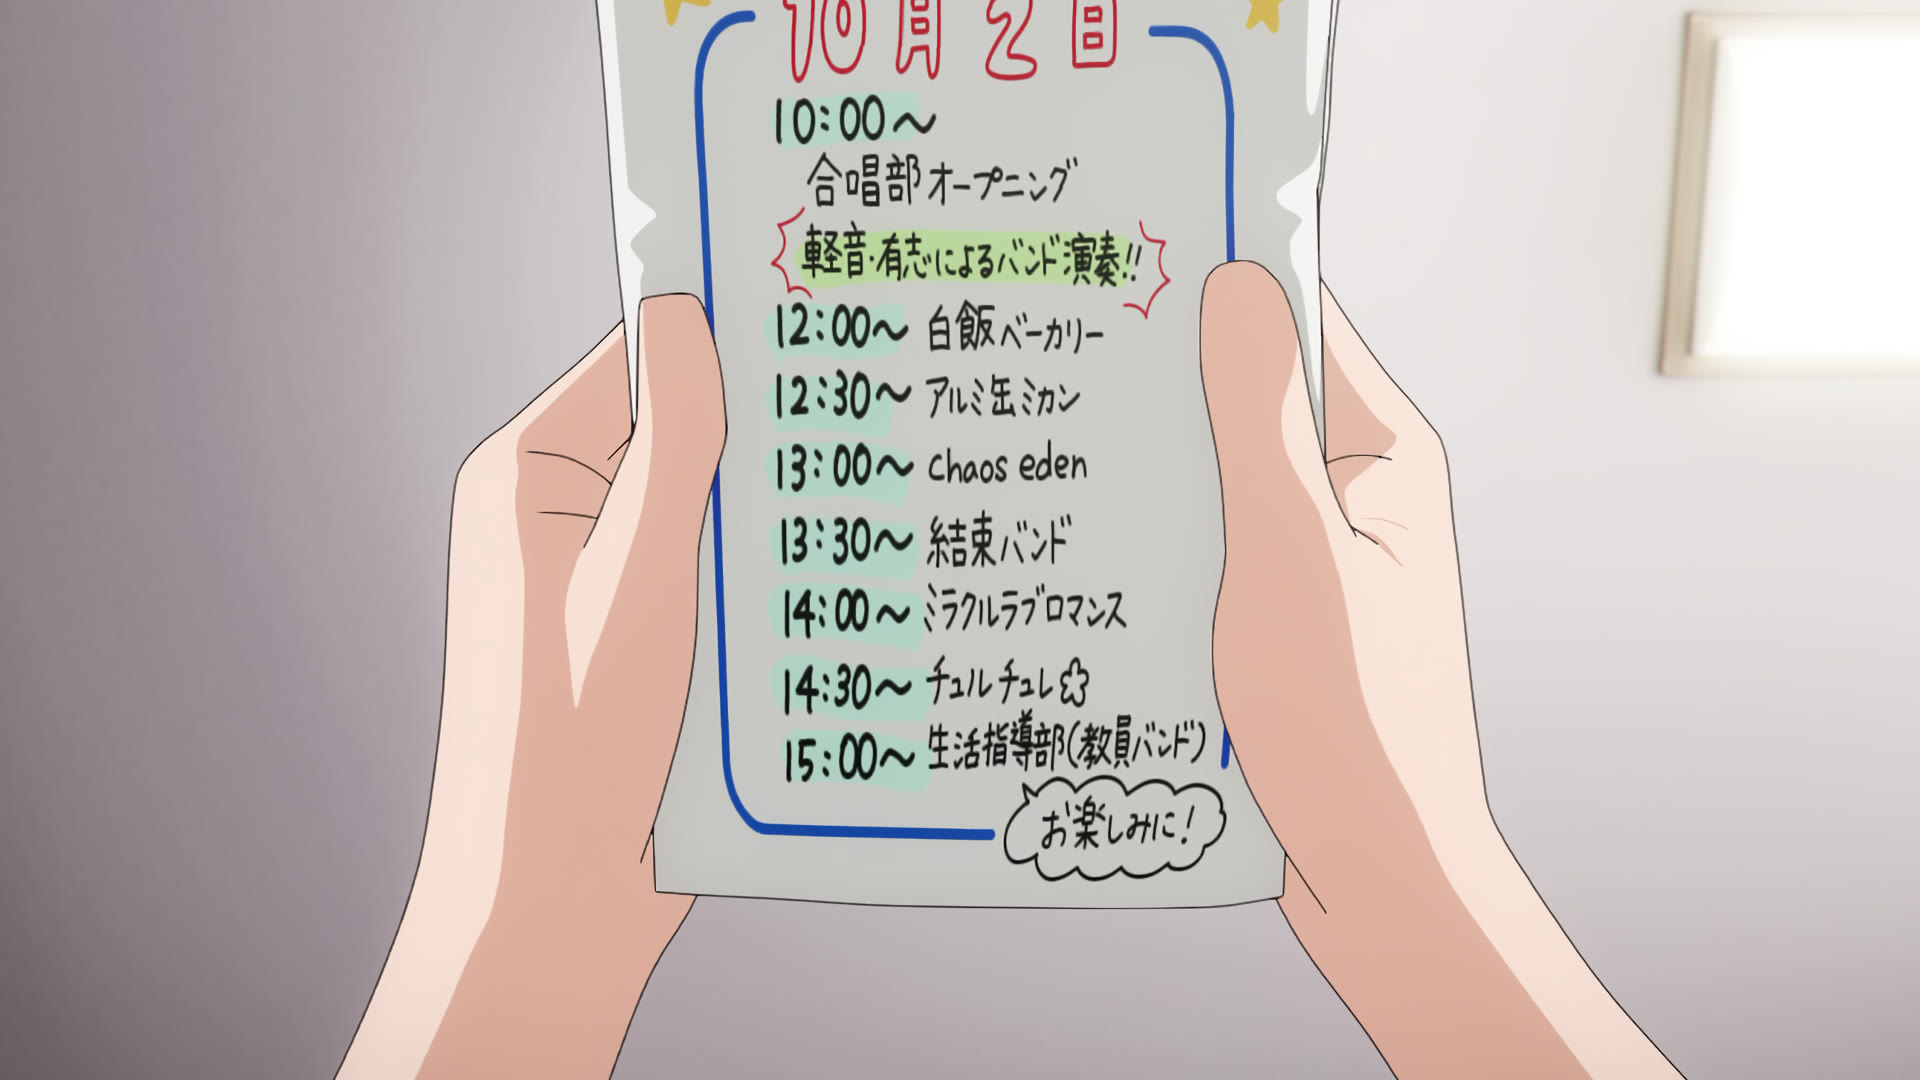 10月2日
10:00～
合唱部オープニング
軽音・有志によるバンド演奏!!
12:00～ 白飯ベーカリー
12:30～ アルミ缶ミカン
13:00～ chaos eden
13:30～ 結束バンド
14:00～ ミラクルラブロマンス
14:30～ チュルチュレ✿
15:00～ 生活指導部(教員バンド)
お楽しみに!